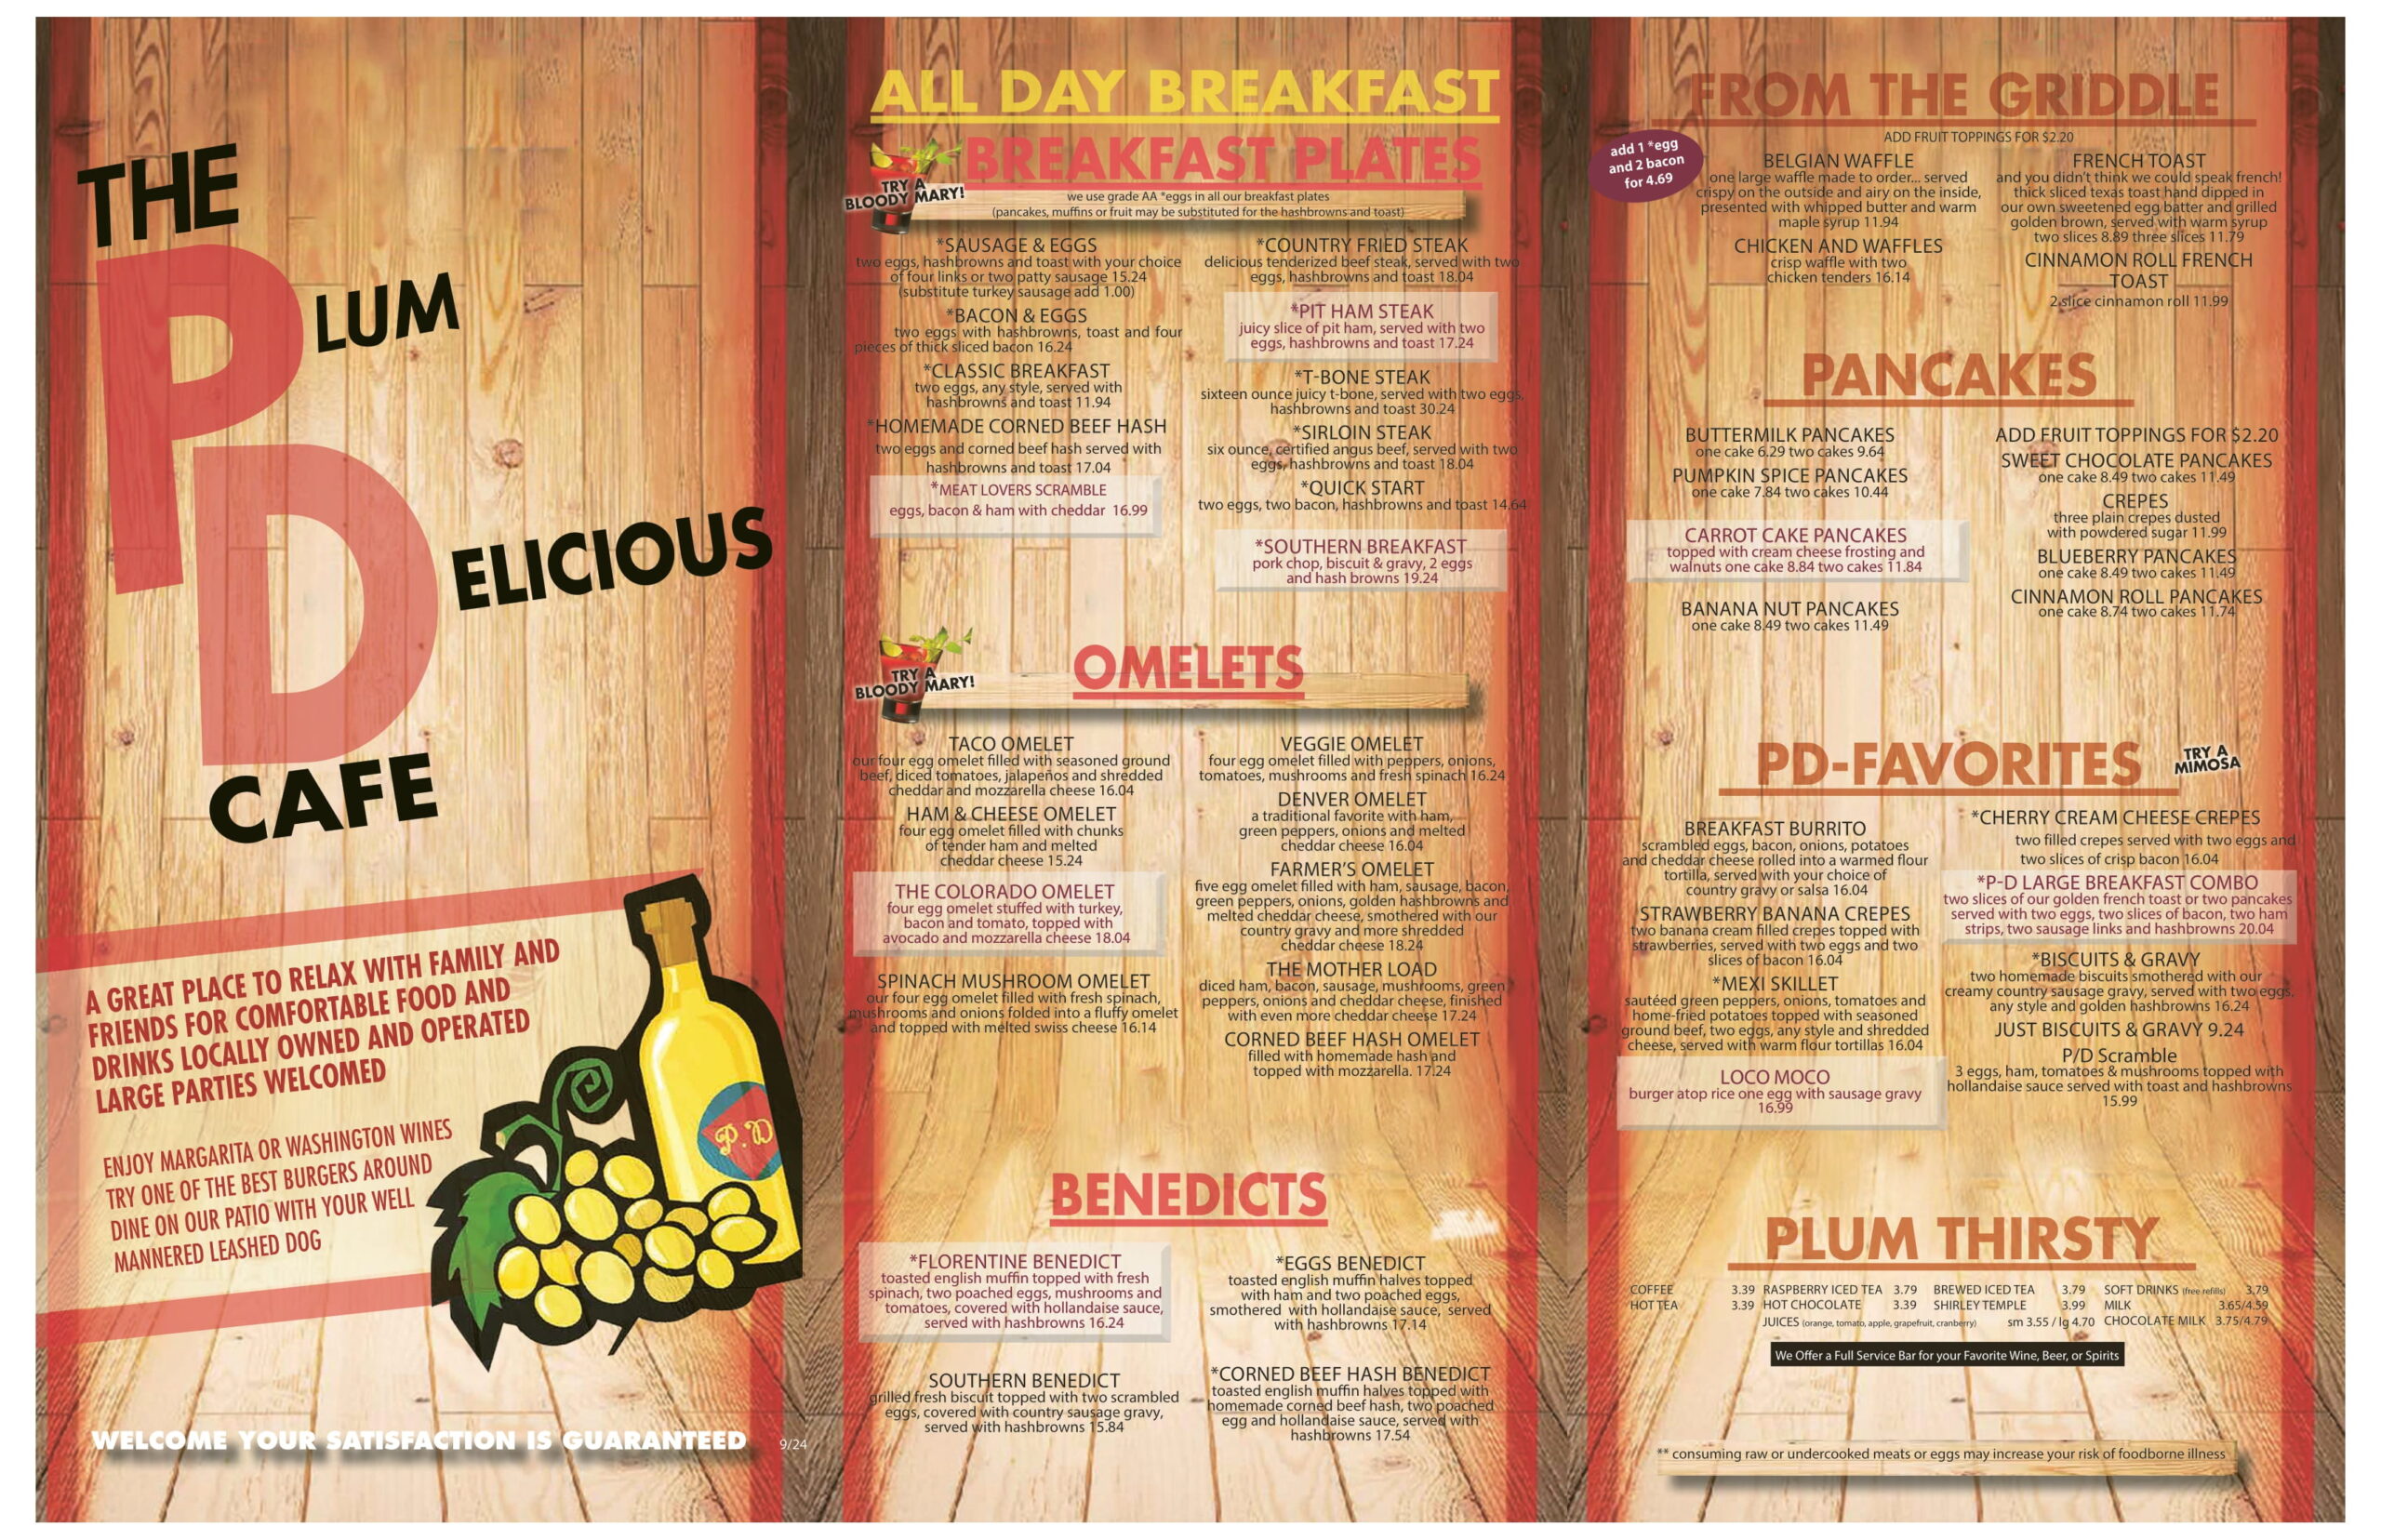 THE
PLUM
DELICIOUS
CAFE
A GREAT PLACE TO RELAX WITH FAMILY AND
FRIENDS FOR COMFORTABLE FOOD AND
DRINKS LOCALLY OWNED AND OPERATED
LARGE PARTIES WELCOMED
ENJOY MARGARITA OR WASHINGTON WINES
TRY ONE OF THE BEST BURGERS AROUND
DINE ON OUR PATIO WITH YOUR WELL
MANNERED LEASHED DOG
P.D
WELCOME YOUR SATISFACTION IS GUARANTEED
9/24
ALL DAY BREAKFAST
BREAKFAST PLATES
TRY A
BLOODY MARY!
we use grade AA *eggs in all our breakfast plates
(pancakes, muffins or fruit may be substituted for the hashbrowns and toast)
*SAUSAGE & EGGS
two eggs, hashbrowns and toast with your choice
of four links or two patty sausage 15.24
(substitute turkey sausage add 1.00)
*BACON & EGGS
two eggs with hashbrowns, toast and four
pieces of thick sliced bacon 16.24
*CLASSIC BREAKFAST
two eggs, any style, served with
hashbrowns and toast 11.94
*HOMEMADE CORNED BEEF HASH
two eggs and corned beef hash served with
hashbrowns and toast 17.04
*MEAT LOVERS SCRAMBLE
eggs, bacon & ham with cheddar 16.99
*COUNTRY FRIED STEAK
delicious tenderized beef steak, served with two
eggs, hashbrowns and toast 18.04
*PIT HAM STEAK
juicy slice of pit ham, served with two
eggs, hashbrowns and toast 17.24
*T-BONE STEAK
sixteen ounce juicy t-bone, served with two eggs,
hashbrowns and toast 30.24
*SIRLOIN STEAK
six ounce, certified angus beef, served with two
eggs, hashbrowns and toast 18.04
*QUICK START
two eggs, two bacon, hashbrowns and toast 14.64
*SOUTHERN BREAKFAST
pork chop, biscuit & gravy, 2 eggs
and hash browns 19.24
TRY A
BLOODY MARY!
OMELETS
TACO OMELET
our four egg omelet filled with seasoned ground
beef, diced tomatoes, jalapeños and shredded
cheddar and mozzarella cheese 16.04
HAM & CHEESE OMELET
four egg omelet filled with chunks
of tender ham and melted
cheddar cheese 15.24
THE COLORADO OMELET
four egg omelet stuffed with turkey,
bacon and tomato, topped with
avocado and mozzarella cheese 18.04
SPINACH MUSHROOM OMELET
our four egg omelet filled with fresh spinach,
mushrooms and onions folded into a fluffy omelet
and topped with melted swiss cheese 16.14
VEGGIE OMELET
four egg omelet filled with peppers, onions,
tomatoes, mushrooms and fresh spinach 16.24
DENVER OMELET
a traditional favorite with ham,
green peppers, onions and melted
cheddar cheese 16.04
FARMER'S OMELET
five egg omelet filled with ham, sausage, bacon,
green peppers, onions, golden hashbrowns and
melted cheddar cheese, smothered with our
country gravy and more shredded
cheddar cheese 18.24
THE MOTHER LOAD
diced ham, bacon, sausage, mushrooms, green
peppers, onions and cheddar cheese, finished
with even more cheddar cheese 17.24
CORNED BEEF HASH OMELET
filled with homemade hash and
topped with mozzarella. 17.24
BENEDICTS
*FLORENTINE BENEDICT
toasted english muffin topped with fresh
spinach, two poached eggs, mushrooms and
tomatoes, covered with hollandaise sauce,
served with hashbrowns 16.24
SOUTHERN BENEDICT
grilled fresh biscuit topped with two scrambled
eggs, covered with country sausage gravy,
served with hashbrowns 15.84
*EGGS BENEDICT
toasted english muffin halves topped
with ham and two poached eggs,
smothered with hollandaise sauce, served
with hashbrowns 17.14
*CORNED BEEF HASH BENEDICT
toasted english muffin halves topped with
homemade corned beef hash, two poached
egg and hollandaise sauce, served with
hashbrowns 17.54
FROM THE GRIDDLE
ADD FRUIT TOPPINGS FOR $2.20
add 1 *egg
and 2 bacon
for 4.69
BELGIAN WAFFLE
one large waffle made to order... served
crispy on the outside and airy on the inside,
presented with whipped butter and warm
maple syrup 11.94
CHICKEN AND WAFFLES
crisp waffle with two
chicken tenders 16.14
FRENCH TOAST
and you didn't think we could speak french!
thick sliced texas toast hand dipped in
our own sweetened egg batter and grilled
golden brown, served with warm syrup
two slices 8.89 three slices 11.79
CINNAMON ROLL FRENCH
TOAST
2 slice cinnamon roll 11.99
PANCAKES
BUTTERMILK PANCAKES
one cake 6.29 two cakes 9.64
PUMPKIN SPICE PANCAKES
one cake 7.84 two cakes 10.44
CARROT CAKE PANCAKES
topped with cream cheese frosting and
walnuts one cake 8.84 two cakes 11.84
BANANA NUT PANCAKES
one cake 8.49 two cakes 11.49
ADD FRUIT TOPPINGS FOR $2.20
SWEET CHOCOLATE PANCAKES
one cake 8.49 two cakes 11.49
CREPES
three plain crepes dusted
with powdered sugar 11.99
BLUEBERRY PANCAKES
one cake 8.49 two cakes 11.49
CINNAMON ROLL PANCAKES
one cake 8.74 two cakes 11.74
PD-FAVORITES
TRY A
MIMOSA
BREAKFAST BURRITO
scrambled eggs, bacon, onions, potatoes
and cheddar cheese rolled into a warmed flour
tortilla, served with your choice of
country gravy or salsa 16.04
STRAWBERRY BANANA CREPES
two banana cream filled crepes topped with
strawberries, served with two eggs and two
slices of bacon 16.04
*MEXI SKILLET
sautéed green peppers, onions, tomatoes and
home-fried potatoes topped with seasoned
ground beef, two eggs, any style and shredded
cheese, served with warm flour tortillas 16.04
LOCO MOCO
burger atop rice one egg with sausage gravy
16.99
*CHERRY CREAM CHEESE CREPES
two filled crepes served with two eggs and
two slices of crisp bacon 16.04
*P-D LARGE BREAKFAST COMBO
two slices of our golden french toast or two pancakes
served with two eggs, two slices of bacon, two ham
strips, two sausage links and hashbrowns 20.04
*BISCUITS & GRAVY
two homemade biscuits smothered with our
creamy country sausage gravy, served with two eggs,
any style and golden hashbrowns 16.24
JUST BISCUITS & GRAVY 9.24
P/D Scramble
3 eggs, ham, tomatoes & mushrooms topped with
hollandaise sauce served with toast and hashbrowns
15.99
PLUM THIRSTY
COFFEE 3.39 RASPBERRY ICED TEA 3.79 BREWED ICED TEA 3.79 SOFT DRINKS (free refills) 3.79
HOT TEA 3.39 HOT CHOCOLATE 3.39 SHIRLEY TEMPLE 3.99 MILK 3.65/4.59
JUICES (orange, tomato, apple, grapefruit, cranberry) sm 3.55 / lg 4.70 CHOCOLATE MILK 3.75/4.79
We Offer a Full Service Bar for your Favorite Wine, Beer, or Spirits
** consuming raw or undercooked meats or eggs may increase your risk of foodborne illness